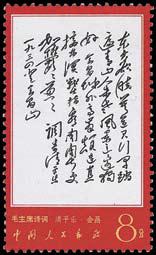 东方欲晓莫道君行早踏
遍青山人未老风景这边独
好会昌城外高峰颠连直
接东溟战士指看南粤更
加郁郁葱葱 调寄清平乐
毛主席诗词 清平乐·会昌
中国人民邮政 8分